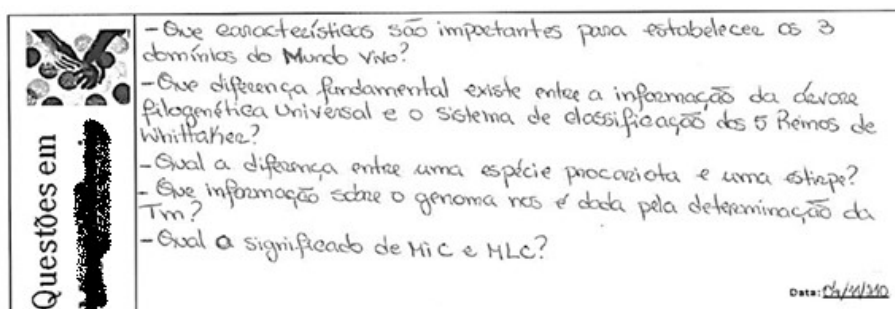 - Que características são importantes para estabelecer os 3
domínios do Mundo Vivo?
- Que diferença fundamental existe entre a informação da árvore
filogenética Universal e o sistema de classificação dos 5 Reinos de
Whittaker?
- Qual a diferença entre uma espécie procariota e uma estirpe?
- Que informação sobre o genoma nos é dada pela determinação da
Tm?
- Qual o significado de MiC e MLC?
Questões em
Data: